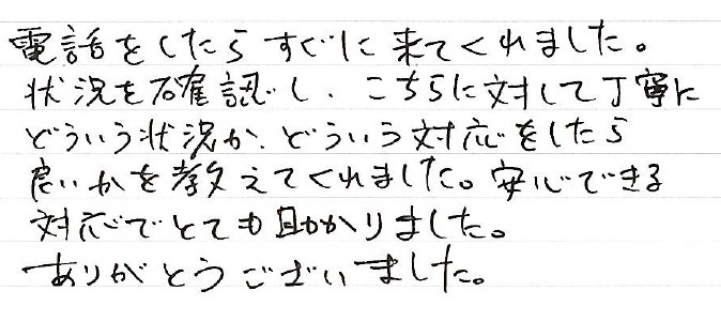 電話をしたらすぐに来てくれました。
状況を確認し、こちらに対して丁寧に
どういう状況か、どういう対応をしたら
良いかを教えてくれました。安心できる
対応でとても助かりました。
ありがとうございました。